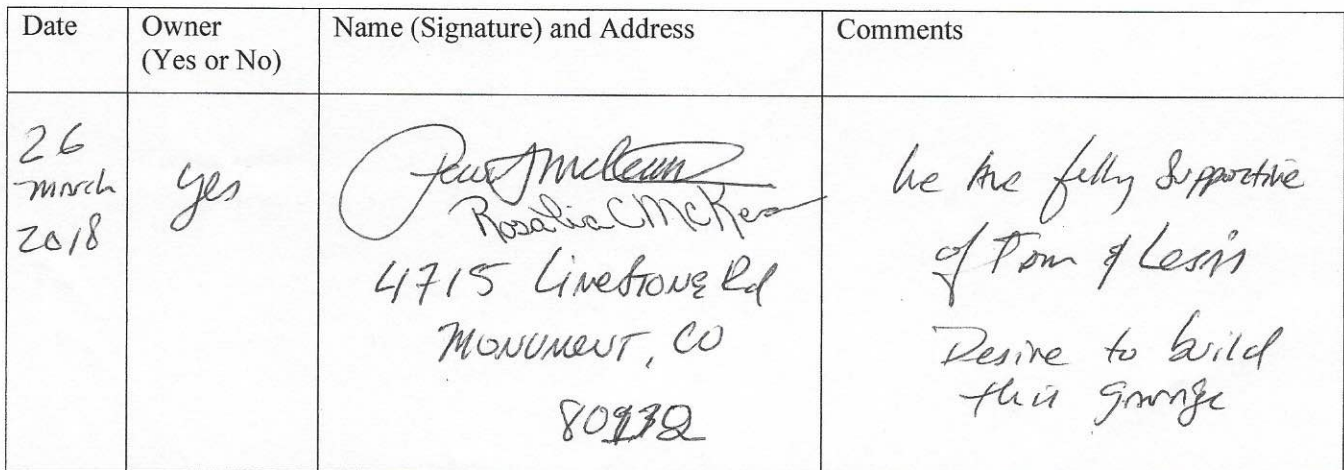 Date
Owner
(Yes or No)
Name (Signature) and Address
Comments
26
March
2018
yes
Rosalia C McKe
4715 Limestone Rd
MONUMENT, CO
We Are fully Supportive
of Tom &
Desire to build
this garage